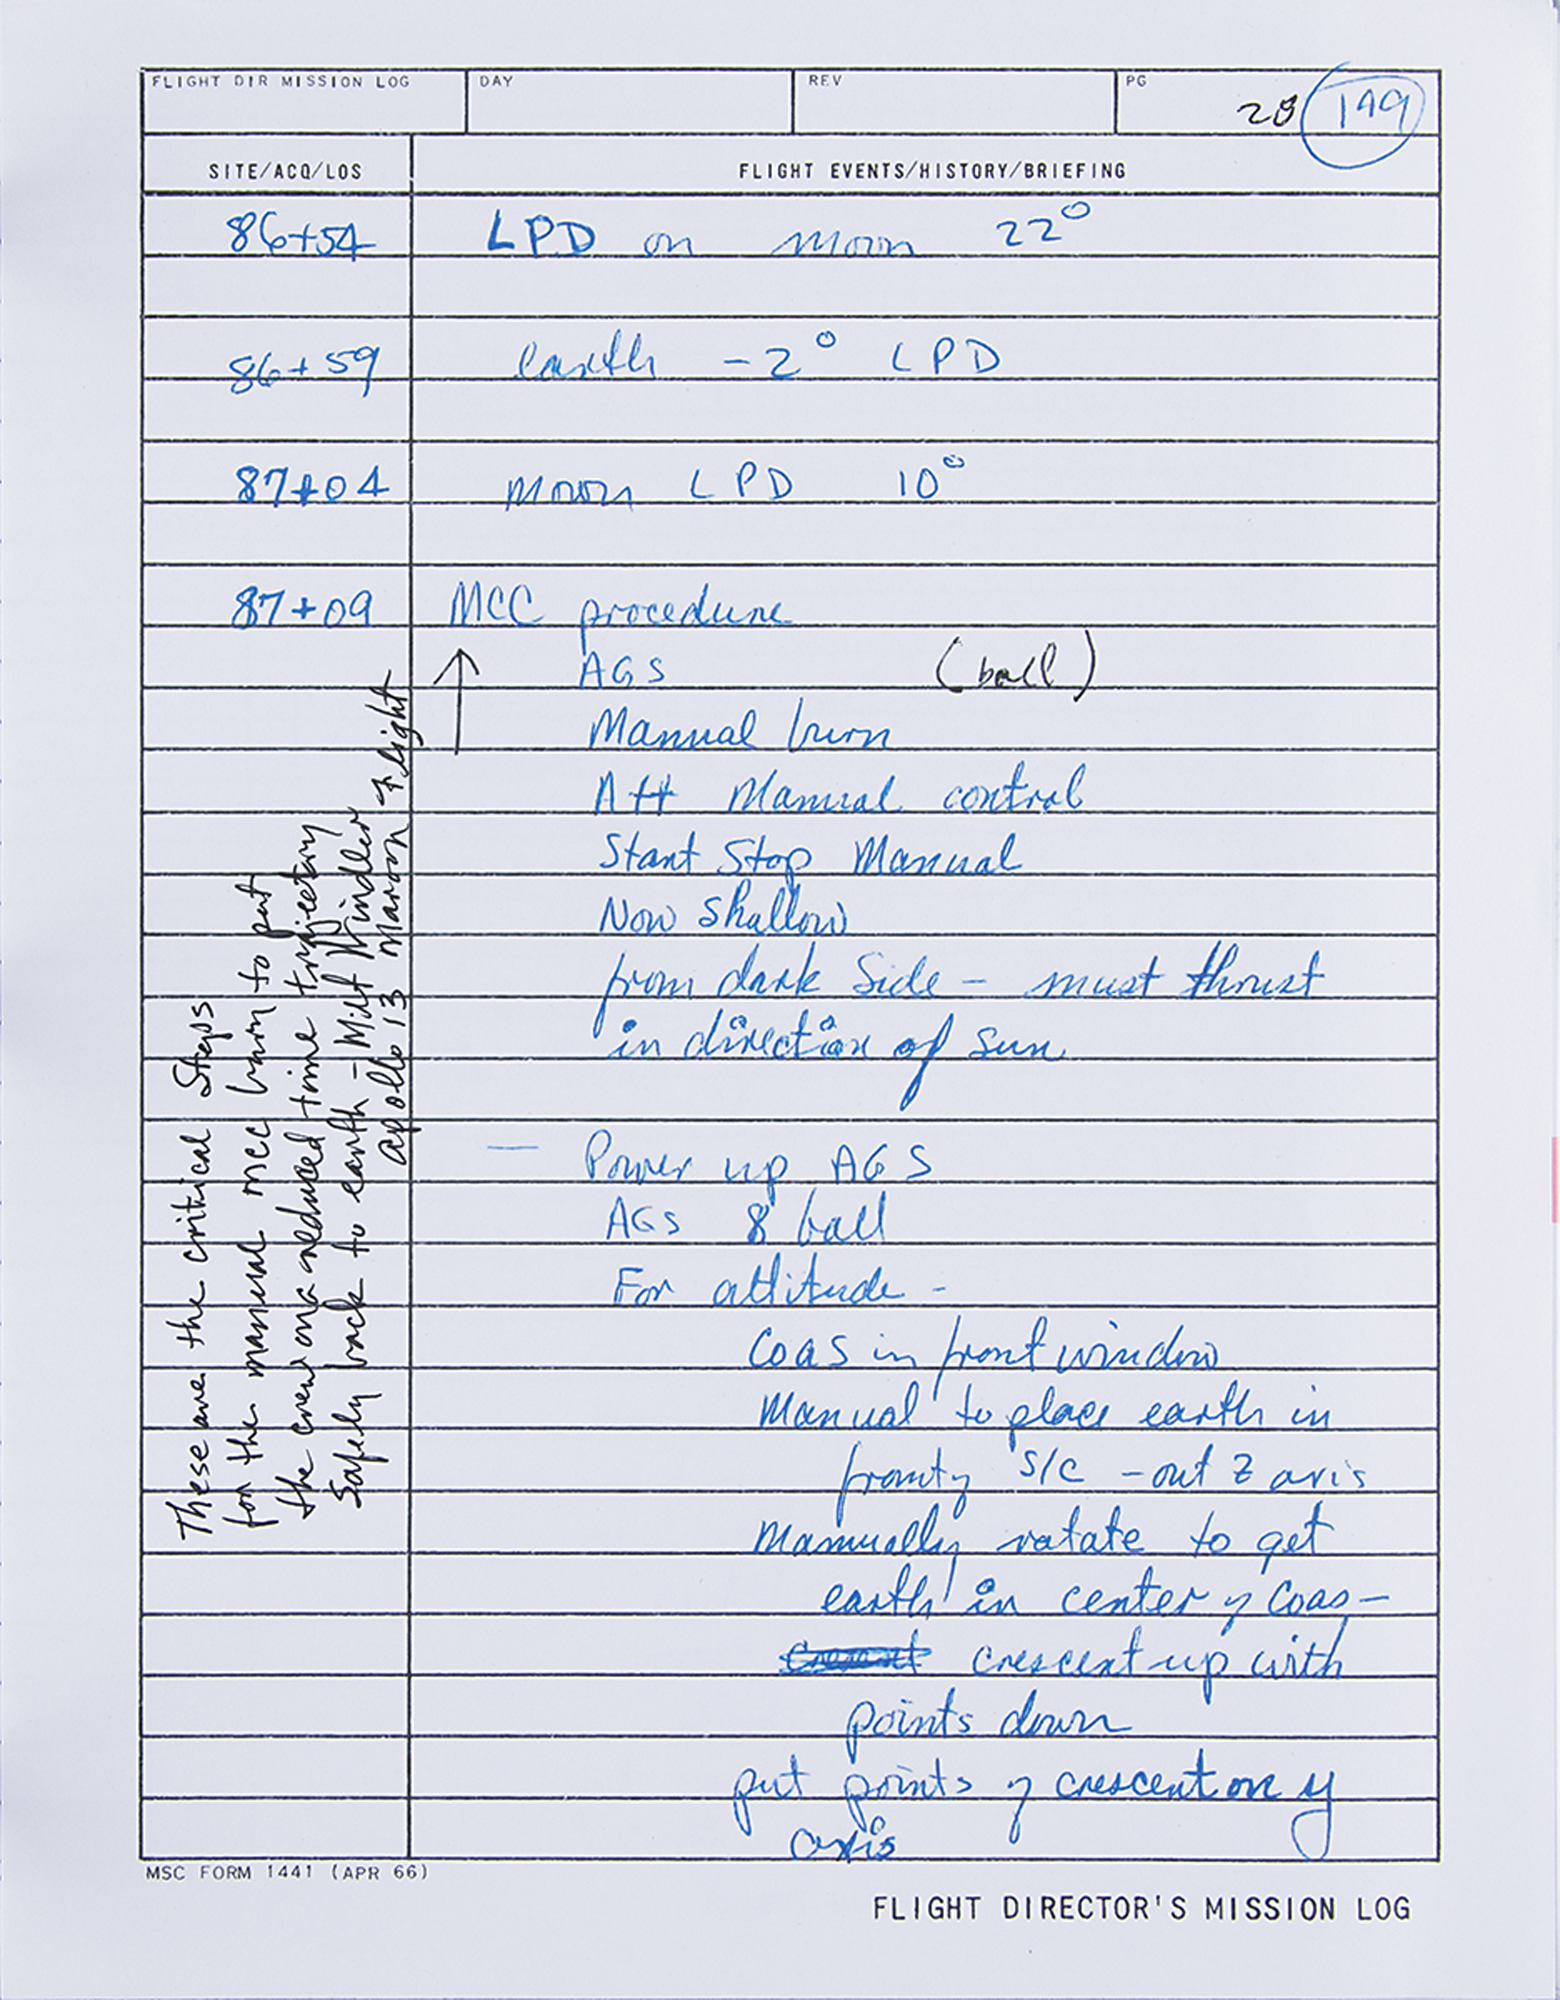 FLIGHT DIR MISSION LOG DAY REV PG
28 199
SITE/ACQ/LOS FLIGHT EVENTS/HISTORY/BRIEFING
86+54 LPD on moon 22°
86+59 earth -2° LPD
87+04 moon LPD 10°
87+09 MCC procedure
AGS (ball)
Manual burn
Att Manual control
Start Stop Manual
Now shallow
from dark side - must thrust
in direction of sun.
— Power up AGS
AGS 8 ball
For attitude -
Coas in front window
Manual to place earth in
front of S/C - out Z axis
Manually rotate to get
earth in center of Coas -
crescent up with
points down
put points of crescent on y
axis
These are the critical steps
for the manual MCC burn to put
the crew on a reduced time trajectory
Safely back to earth - Milt Windler
Apollo 13 Maroon Flight
MSC FORM 1441 (APR 66)
FLIGHT DIRECTOR'S MISSION LOG